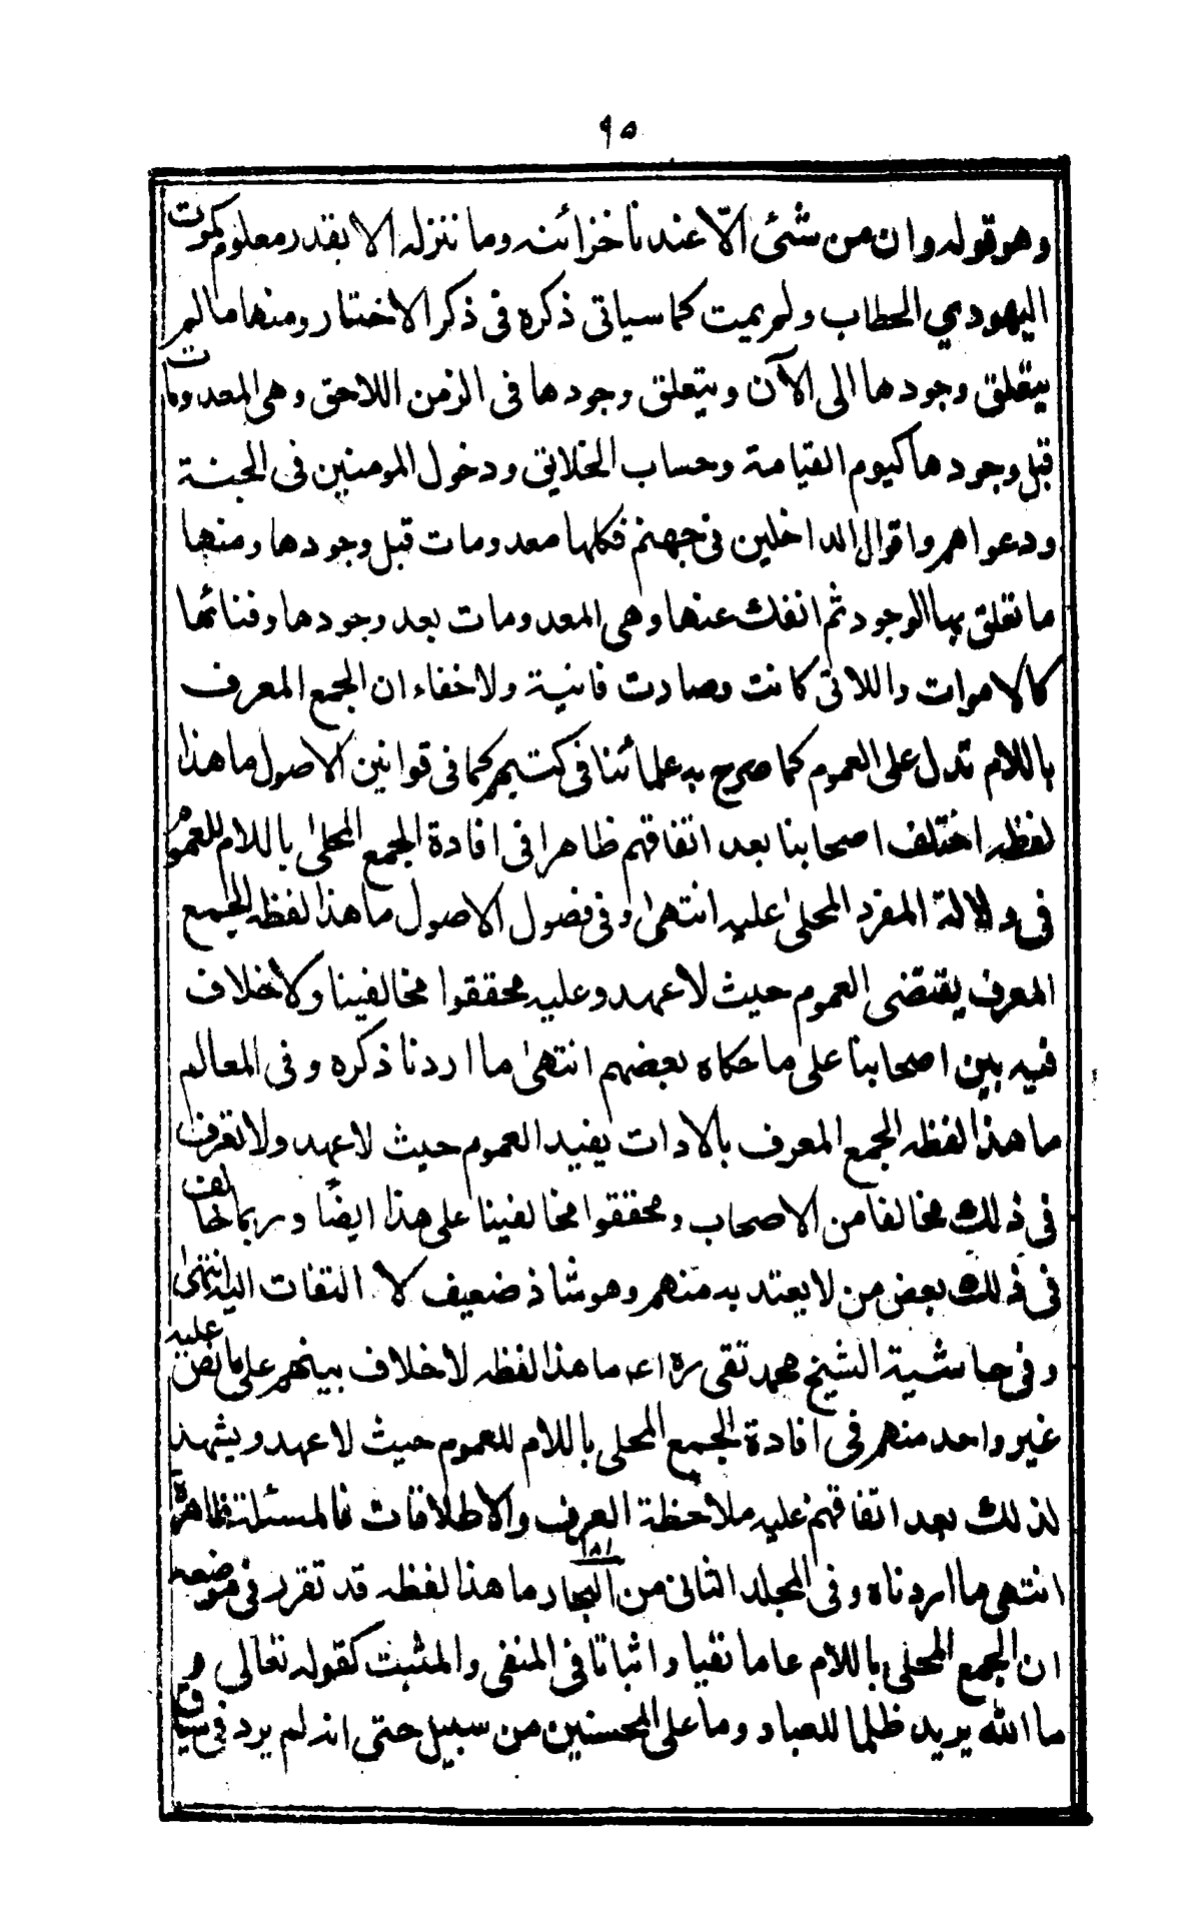 ٩٥
وهو قوله وان من شئ الّا عندنا خزائنه وما ننزله الا بقدر معلوم كموت
اليهودي الحطاب ولم يمت كما سياتى ذكره فى ذكر الاختبار ومنها ما لم
يتعلق وجودها الى الآن ويتعلق وجودها فى الزمن اللاحق وهى المعدومات
قبل وجودها كيوم القيامة وحساب الخلايق ودخول المومنين فى الجنة
ودعواهم واقوال الداخلين فى جهنم فكلها معدومات قبل وجودها ومنها
ما تعلق بها الوجود ثم انفك عنها وهى المعدومات بعد وجودها وفنائها
كالاموات واللاتى كانت وصارت فانية ولا خفاء ان الجمع المعرف
باللام تدل على العموم كما صرح به علمائنا فى كتبهم كما فى قوانين الاصول ما هذا
لفظه اختلف اصحابنا بعد اتفاقهم ظاهرا فى افادة الجمع المحلى باللام للعموم
فى دلالة المفرد المحلى عليه انتهى وفى فصول الاصول ما هذا لفظه الجمع
المعرف يقتضى العموم حيث لا عهد وعليه محققوا مخالفينا ولا خلاف
فيه بين اصحابنا على ما حكاه بعضهم انتهى ما اردنا ذكره وفى المعالم
ما هذا لفظه الجمع المعرف بالادات يفيد العموم حيث لا عهد ولا نعرف
فى ذلك مخالفا من الاصحاب ومحققوا مخالفينا على هذا ايضًا وربما خالف
فى ذلك بعض من لا يعتد به منهم وهو شاذ ضعيف لا التفات اليه انتهى
وفى حاشية الشيخ محمد تقى ره اعه ما هذا لفظه لا خلاف بينهم على ما نص عليه
غير واحد منهم فى افادة الجمع المحلى باللام للعموم حيث لا عهد ويشهد
لذلك بعد اتفاقهم عليه ملاحظة العرف والاطلاقات فالمسئلة ظاهرة
انتهى ما اردناه وفى المجلد الثانى من البحار ١٥١ ما هذا لفظه قد تقرر فى موضعه
ان الجمع المحلى باللام عاما نفيا واثباتا فى المنفى والمثبت كقوله تعالى و
ما الله يريد ظلما للعباد وما على المحسنين من سبيل حتى انه لم يرد فى سياق